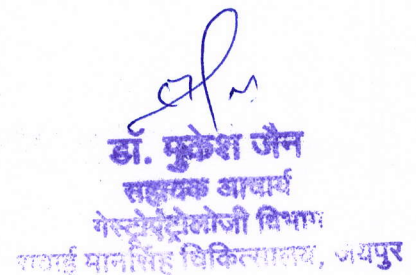 डॉ. मुकेश जैन
सहायक आचार्य
गेस्ट्रोएंट्रोलोजी विभाग
सवाई मानसिंह चिकित्सालय, जयपुर